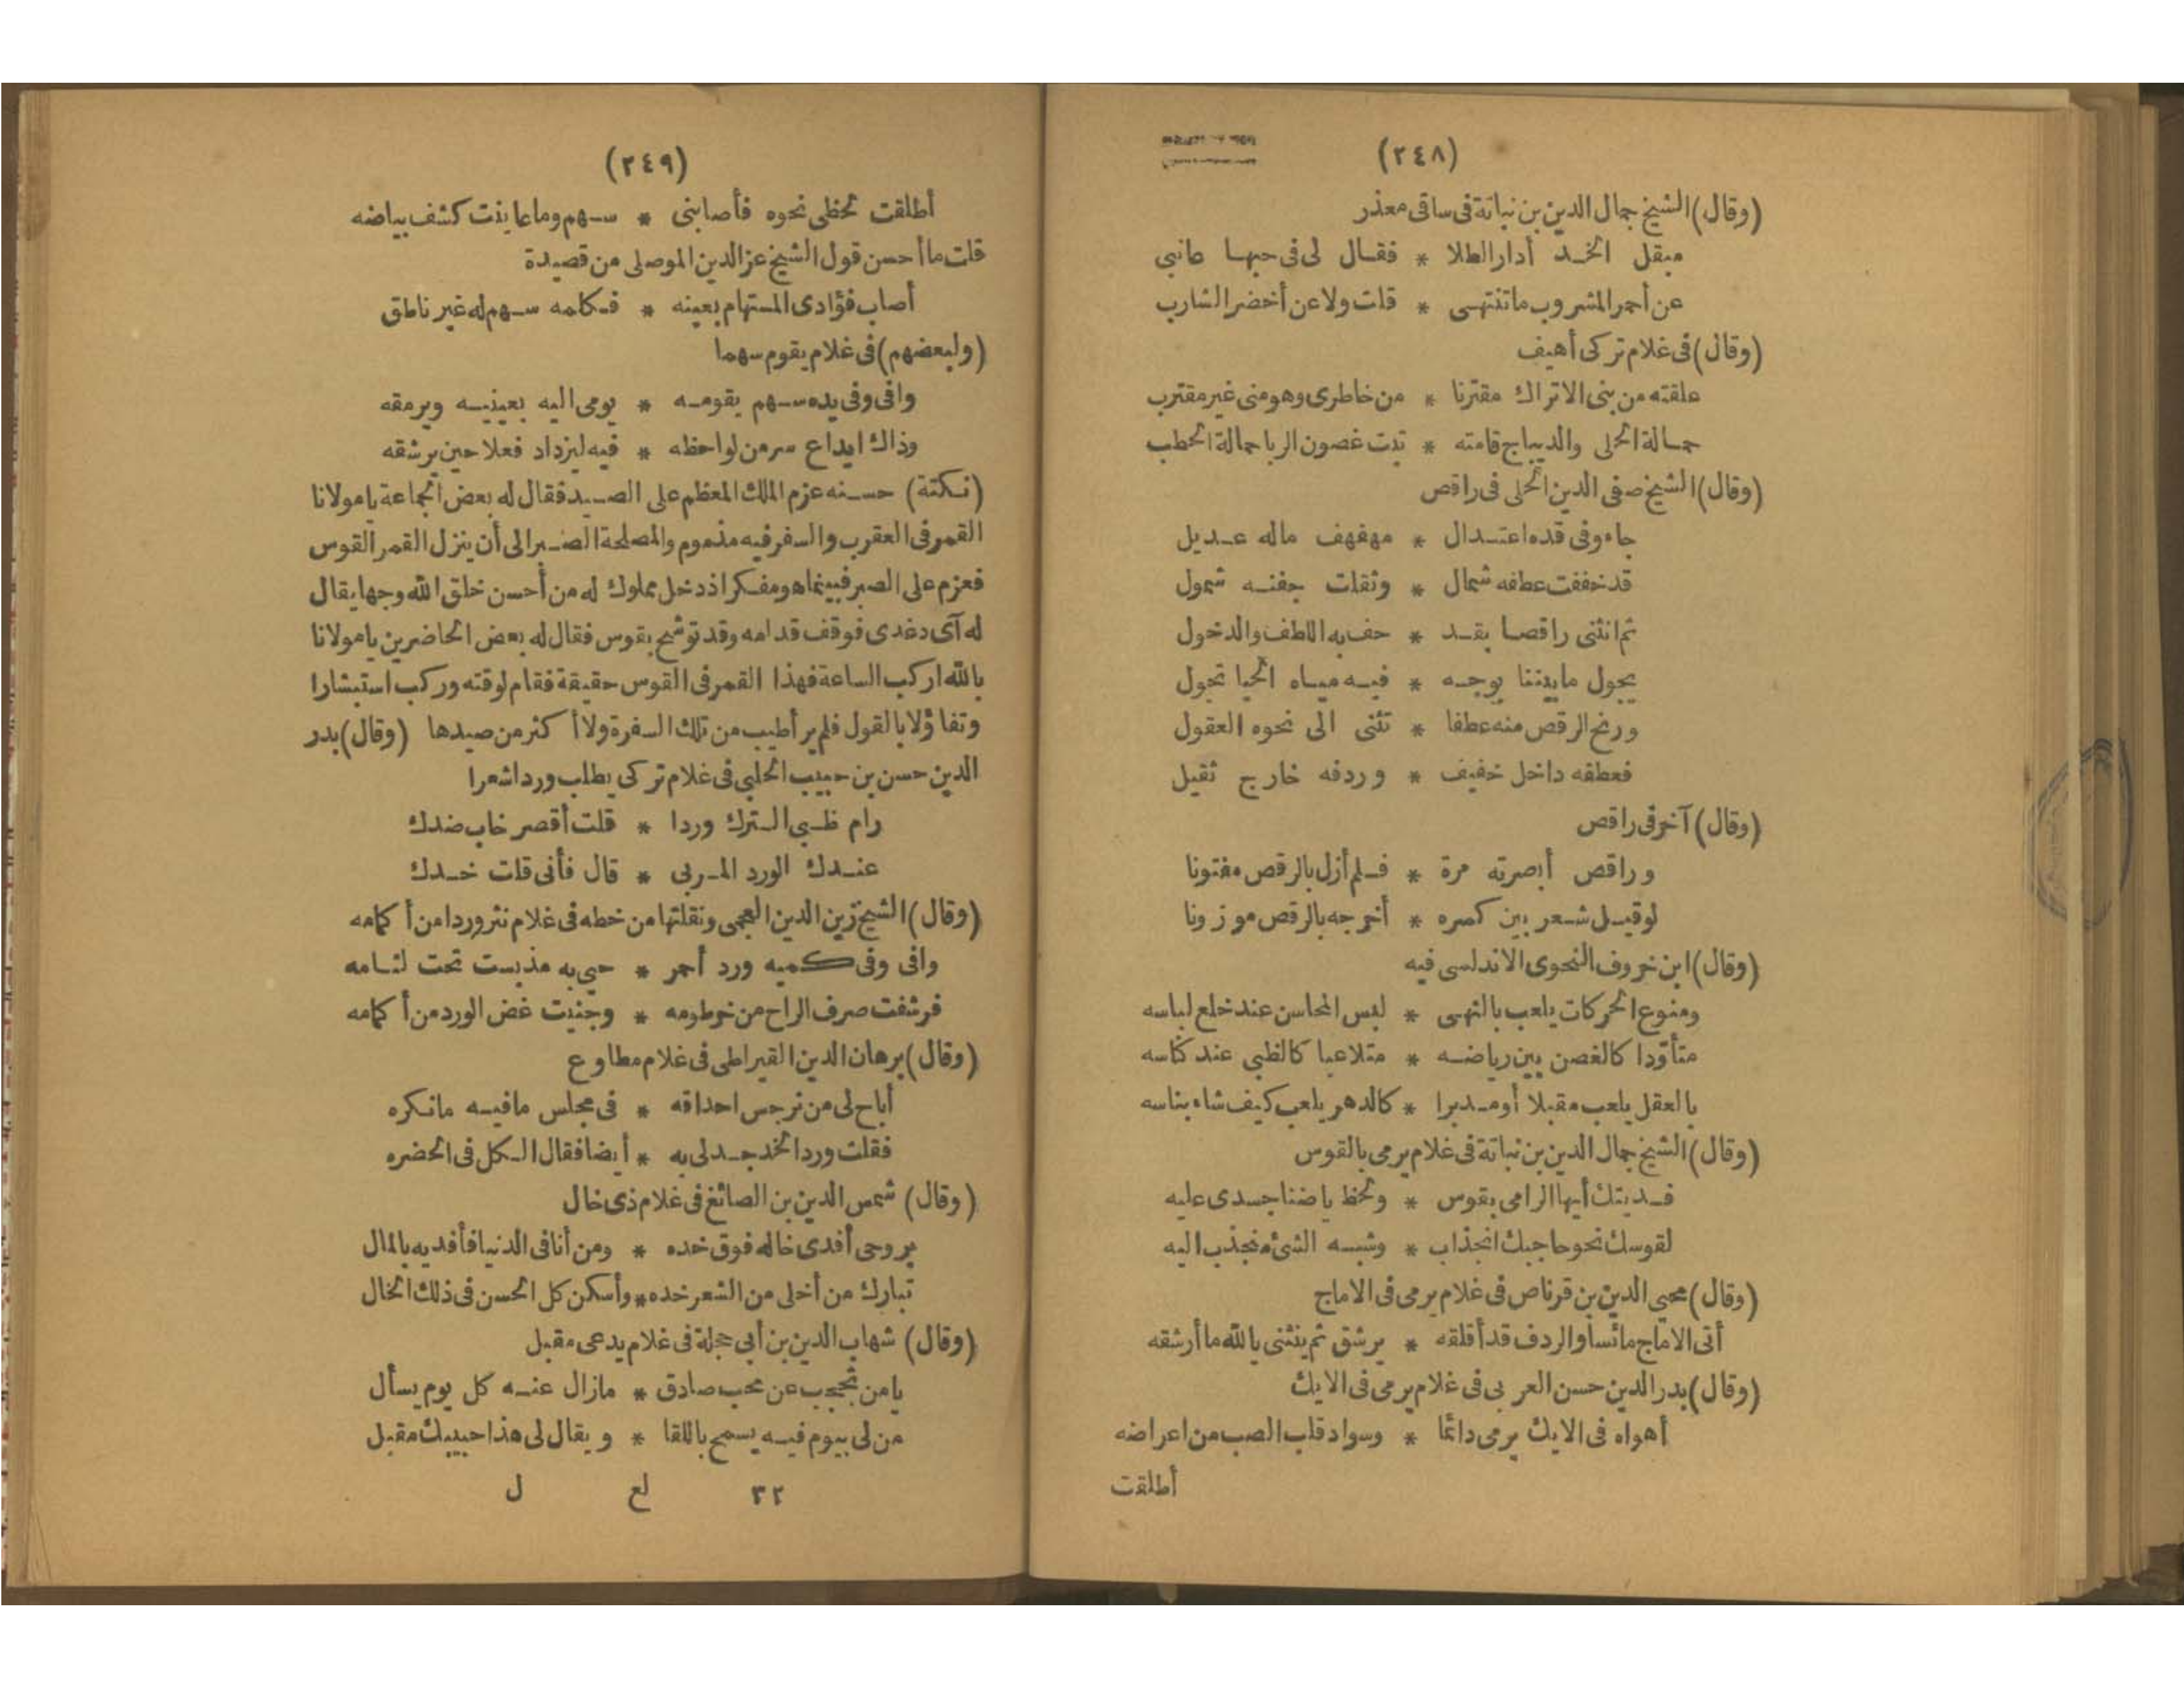 (٢٤٨)
(وقال) الشيخ جمال الدين بن نباتة فى ساقى معذر
مبقل الخد أدار الطلا * فقال لى فى حبها عانبى
عن أحمر المشروب ماتنتهى * قلت ولا عن أخضر الشارب
(وقال) فى غلام تركى أهيف
علقته من بنى الاتراك مقترنا * من خاطرى وهو منى غير مقترب
حمالة الحلى والديباج قامته * تبت غصون الربا حمالة الحطب
(وقال) الشيخ صفى الدين الحلى فى راقص
جاء وفى قده اعتدال * مهفهف ماله عديل
قد خففت عطفه شمال * وثقلت جفنه شمول
ثم انثنى راقصا بقد * حف به اللطف والدخول
يجول مابيننا بوجه * فيه مياه الحيا تجول
ورنح الرقص منه عطفا * تثنى الى نحوه العقول
فعطفه داخل خفيف * وردفه خارج ثقيل
(وقال) آخر فى راقص
وراقص أبصرته مرة * فلم أزل بالرقص مفتونا
لو قيل شعر بين كسره * أخرجه بالرقص موزونا
(وقال) ابن خروف النحوى الاندلسى فيه
ومنوع الحركات يلعب بالنهى * لبس المحاسن عند خلع لباسه
متأودا كالغصن بين رياضه * متلاعبا كالظبى عند كناسه
بالعقل يلعب مقبلا أو مدبرا * كالدهر يلعب كيف شاء بناسه
(وقال) الشيخ جمال الدين بن نباتة فى غلام يرمى بالقوس
فديتك أيها الرامى بقوس * ولحظ ياضنا جسدى عليه
لقوسك نحو حاجبك انجذاب * وشبه الشئ منجذب اليه
(وقال) محيى الدين بن قرناص فى غلام يرمى فى الاماج
أتى الاماج مائسا والردف قد أقلقه * يرشق ثم ينثنى بالله ما أرشقه
(وقال) بدر الدين حسن العربى فى غلام يرمى فى الايك
أهواه فى الايك يرمى دائما * وسواد قلب الصب من اعراضه
أطلقت
(٢٤٩)
أطلقت لحظى نحوه فأصابنى * سهم وما عاينت كشف بياضه
قلت ما أحسن قول الشيخ عز الدين الموصلى من قصيدة
أصاب فؤادى المستهام بعينه * فكامه سهم له غير ناطق
(ولبعضهم) فى غلام يقوم سهما
وافى وفى يده سهم يقومه * يومى اليه بعينيه ويرمقه
وذاك ايداع سر من لواحظه * فيه ليزداد فعلا حين يرشقه
(نكتة) حسنه عزم الملك المعظم على الصيد فقال له بعض الجماعة يا مولانا
القمر فى العقرب والسفر فيه مذموم والمصلحة الصبر الى أن ينزل القمر القوس
فعزم على الصبر فبينما هو مفكر اذ دخل مملوك له من أحسن خلق الله وجها يقال
له آى دغدى فوقف قدامه وقد توشح بقوس فقال له بعض الحاضرين يا مولانا
بالله اركب الساعة فهذا القمر فى القوس حقيقة فقام لوقته وركب استبشارا
وتفاؤلا بالقول فلم ير أطيب من تلك السفرة ولا أكثر من صيدها (وقال) بدر
الدين حسن بن حبيب الحلبى فى غلام تركى يطلب ورد اشعرا
رام ظبى الترك وردا * قلت أقصر خاب ضدك
عندك الورد المربى * قال فأنى قلت خدك
(وقال) الشيخ زين الدين العجمى ونقلتها من خطه فى غلام نثر وردا من أكمامه
وافى وفى كميه ورد أحمر * حيى به مذ بست تحت لثامه
فرشفت صرف الراح من خرطومه * وجنيت غض الورد من أكمامه
(وقال) برهان الدين القيراطى فى غلام مطاوع
أباح لى من نرجس احداقه * فى مجلس مافيه مانكره
فقلت ورد الخد جد لى به * أيضا فقال الكل فى الحضره
(وقال) شمس الدين بن الصائغ فى غلام ذى خال
بروحى أفدى خاله فوق خده * ومن أنا فى الدنيا فأفديه بالمال
تبارك من أخلى من الشعر خده * وأسكن كل الحسن فى ذلك الخال
(وقال) شهاب الدين بن أبى حجلة فى غلام يدعى مقبل
يا من تحجب عن محب صادق * مازال عنه كل يوم يسأل
من لى بيوم فيه يسمح باللقا * ويقال لى هذا حبيبك مقبل
٣٢ لع ل